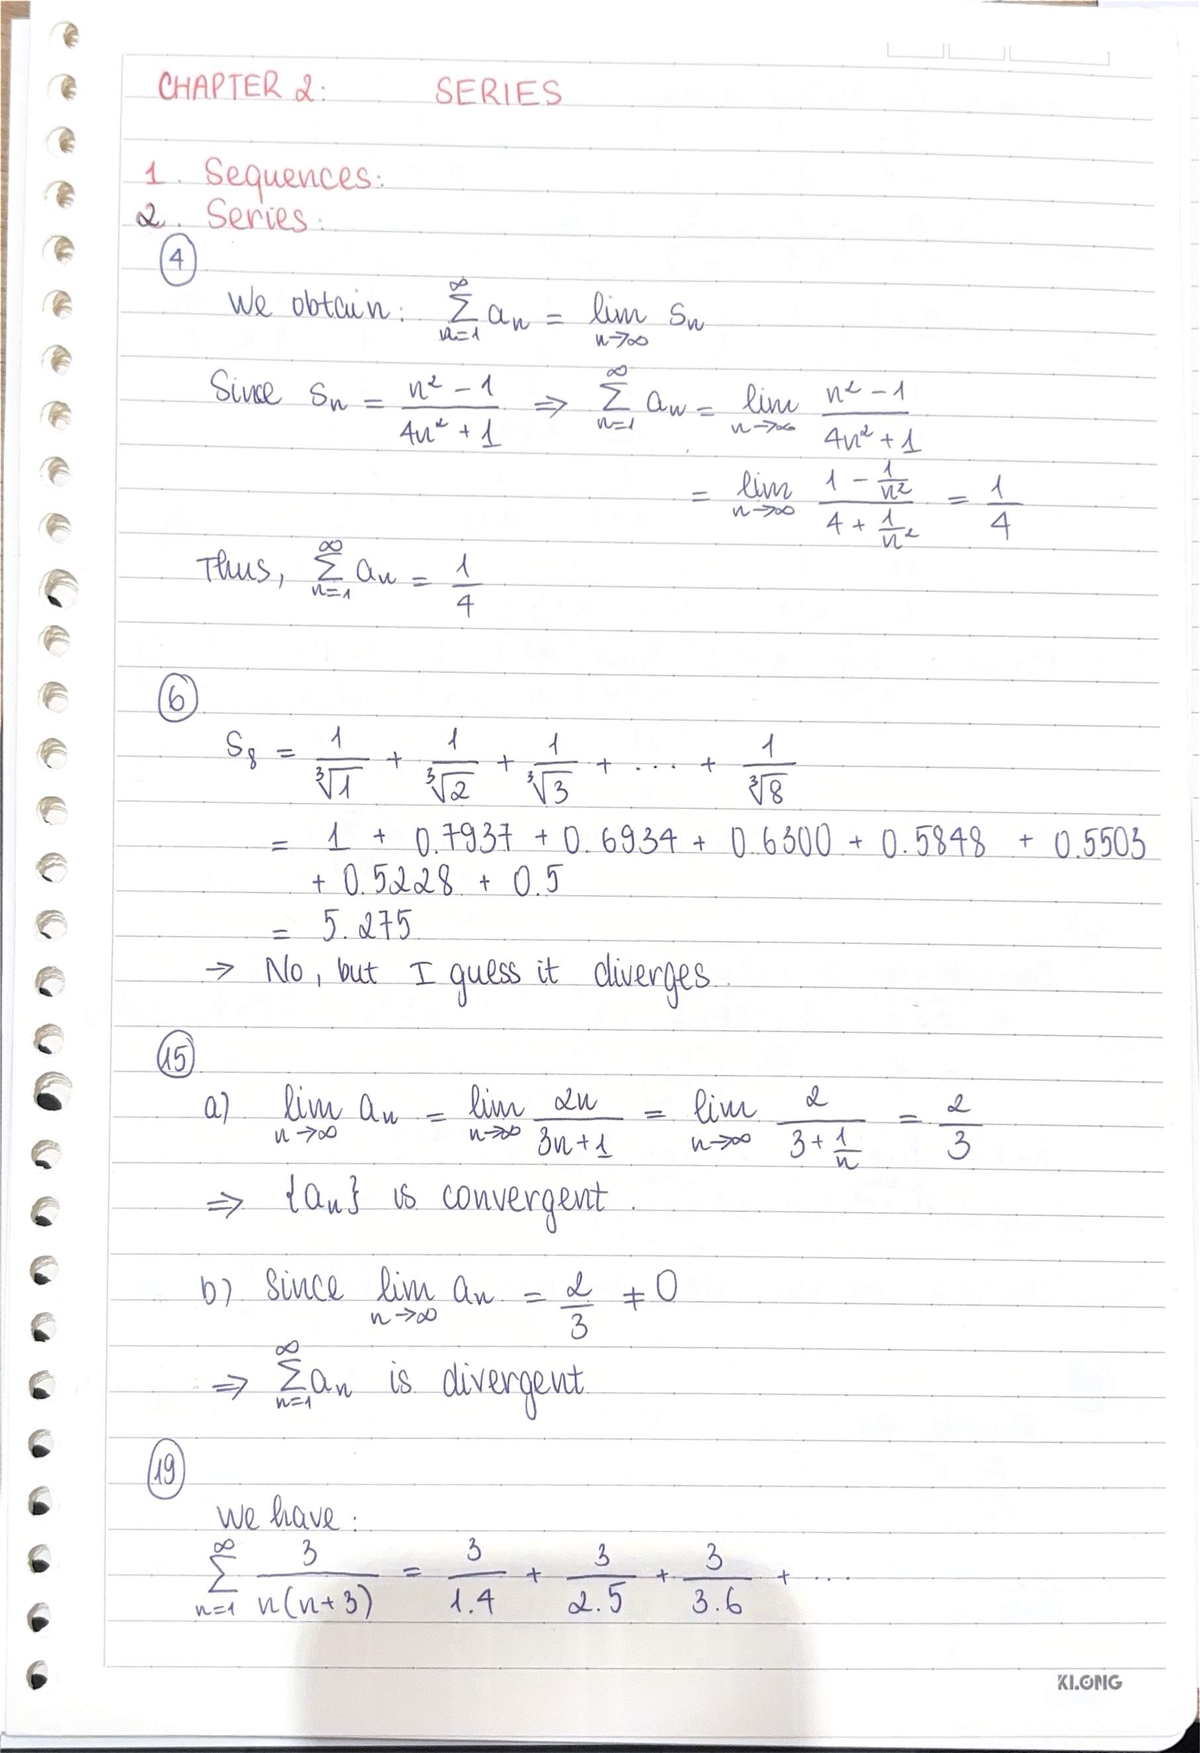 CHAPTER 2: SERIES
1. Sequences:
2. Series:
4
We obtain: ∑_{n=1}^{∞} aₙ = lim_{n→∞} sₙ
Since sₙ = (n² - 1)/(4n² + 1) ⇒ ∑_{n=1}^{∞} aₙ = lim_{n→∞} (n² - 1)/(4n² + 1)
= lim_{n→∞} (1 - 1/n²)/(4 + 1/n²) = 1/4
Thus, ∑_{n=1}^{∞} aₙ = 1/4
6
S₈ = 1/∛1 + 1/∛2 + 1/∛3 + .... + 1/∛8
= 1 + 0.7937 + 0.6934 + 0.6300 + 0.5848 + 0.5503
+ 0.5228 + 0.5
= 5.275
→ No, but I guess it diverges.
15
a) lim_{n→∞} aₙ = lim_{n→∞} 2n/(3n+1) = lim_{n→∞} 2/(3 + 1/n) = 2/3
⇒ {aₙ} is convergent.
b) Since lim_{n→∞} aₙ = 2/3 ≠ 0
⇒ ∑_{n=1}^{∞} aₙ is divergent
19
We have:
∑_{n=1}^{∞} 3/(n(n+3)) = 3/(1.4) + 3/(2.5) + 3/(3.6) + ...
KLONG